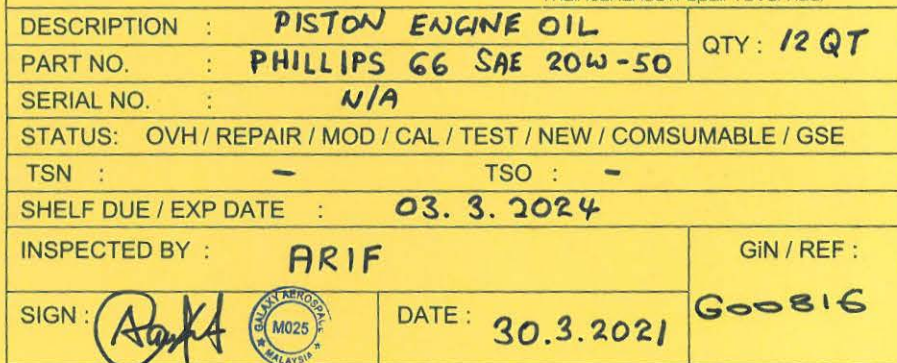 DESCRIPTION : PISTON ENGINE OIL
QTY : 12 QT
PART NO. : PHILLIPS 66 SAE 20W-50
SERIAL NO. : N/A
STATUS: OVH / REPAIR / MOD / CAL / TEST / NEW / COMSUMABLE / GSE
TSN : - TSO : -
SHELF DUE / EXP DATE : 03. 3. 2024
INSPECTED BY : ARIF
GiN / REF :
G00816
SIGN :
GALAXY AEROSPACE
M025
MALAYSIA
DATE : 30.3.2021